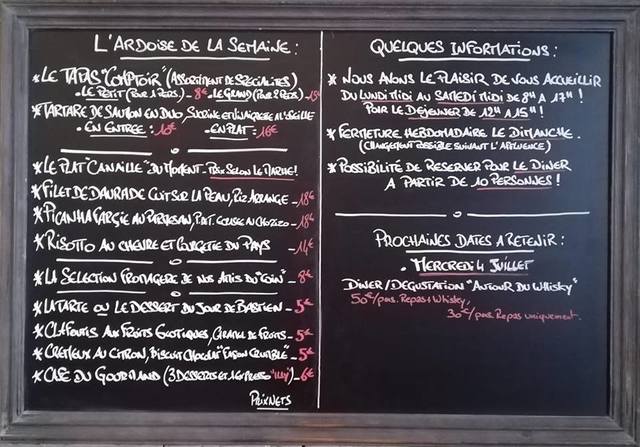 L'ARDOISE DE LA SEMAINE :
* LE TAPAS "COMPTOIR" (ASSORTIMENT DE SPECIALITES)
. LE PETIT (POUR 1 PERS) - 8€ . LE GRAND (POUR 2 PERS) - 15€
* TARTARE DE SAUMON EN DUO,
. EN ENTREE : 10€ . EN PLAT : 16€
* LE PLAT "CANAILLE" DU MOMENT - PRIX SELON LE MARCHE !
* FILET DE DAURADE CUIT SUR LA PEAU, RIZ ARRANGE - 18€
* PICANHA FARÇIE AU PARMESAN, AU CHORIZO - 18€
* RISOTTO AU CHEVRE ET COURGETTE DU PAYS - 14€
* LA SELECTION FROMAGERE DE NOS AMIS DU "COIN" - 8€
* LA TARTE OU LE DESSERT DU JOUR DE BASTIEN - 5€
* CLAFOUTIS AUX FRUITS EXOTIQUES, DE FRUITS - 5€
* CREMEUX AU CITRON, BISCUIT CHOCOLAT "FAÇON CRUMBLE" - 5€
* CAFE DU GOURMAND (3 DESSERTS ET 1 EXPRESSO "ILLY") - 6€
PRIX NETS
QUELQUES INFORMATIONS :
* NOUS AVONS LE PLAISIR DE VOUS ACCUEILLIR
DU LUNDI MIDI AU SAMEDI MIDI DE 8H A 17H !
POUR LE DEJEUNER DE 12H A 15H !
* FERMETURE HEBDOMADAIRE LE DIMANCHE.
(CHANGEMENT POSSIBLE SUIVANT L'AFFLUENCE)
* POSSIBILITE DE RESERVER POUR LE DINER
A PARTIR DE 10 PERSONNES !
PROCHAINES DATES A RETENIR :
. MERCREDI 4 JUILLET
DINER/DEGUSTATION "AUTOUR DU WHISKY"
50€/pers. Repas + Whisky,
30€/pers. Repas uniquement.